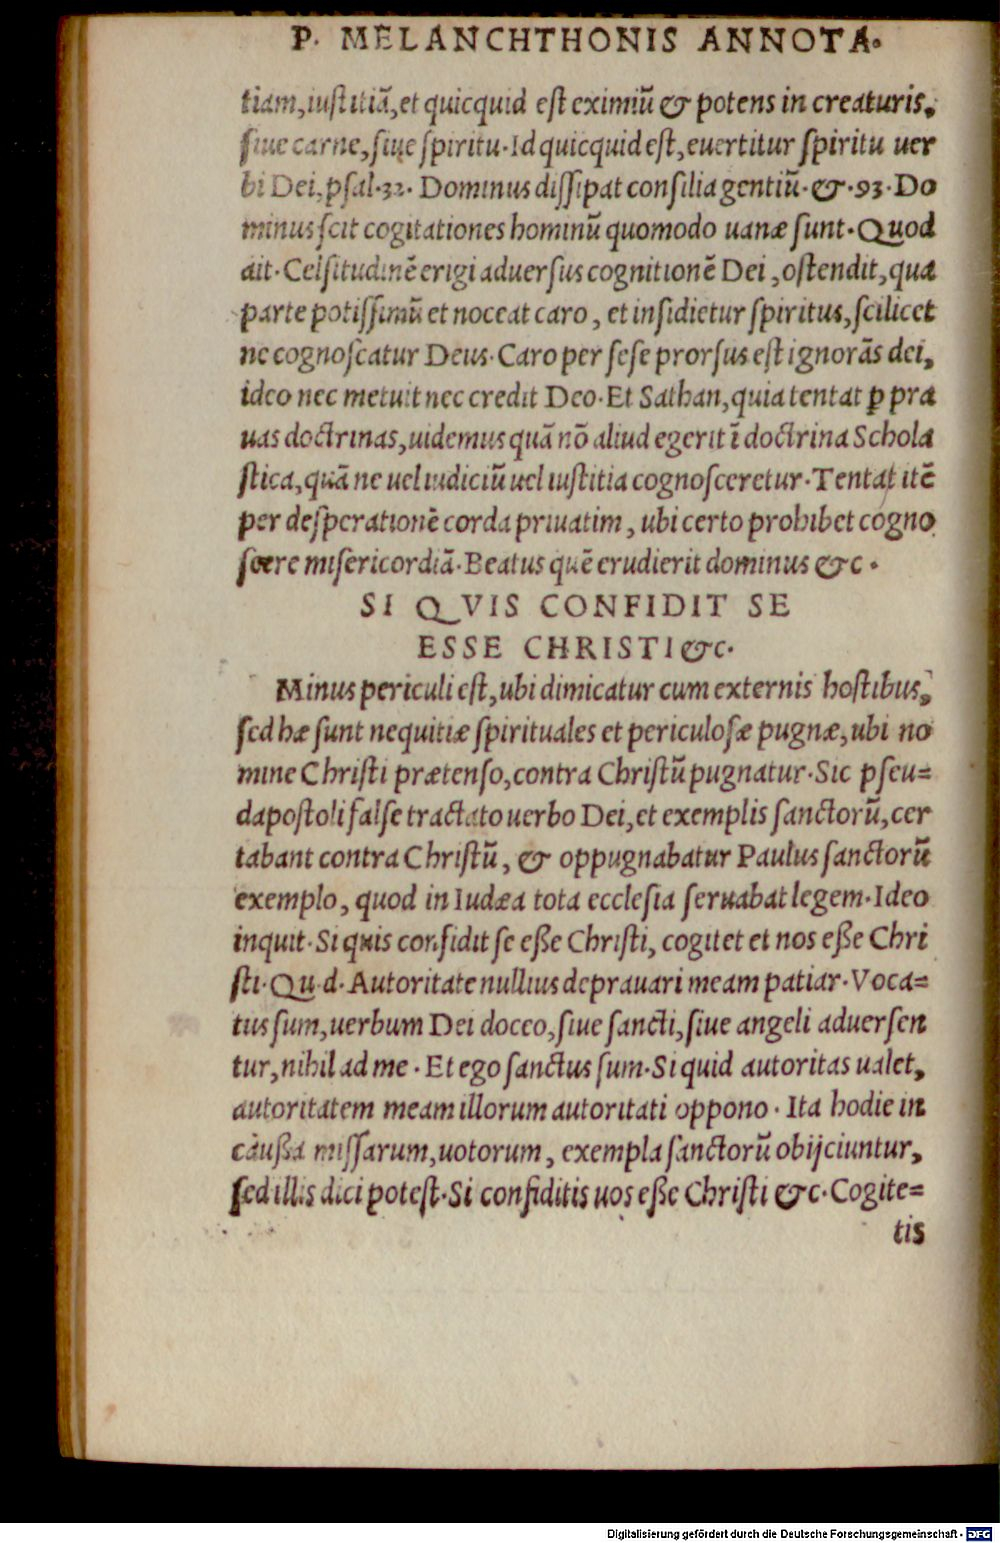 P. MELANCHTHONIS ANNOTA.
tiam, iustitiā, et quicquid est eximiū & potens in creaturis,
siue carne, siue spiritu. Id quicquid est, euertitur spiritu uer
bi Dei, psal. 32. Dominus dissipat consilia gentiū. &. 93. Do
minus scit cogitationes hominū quomodo uanæ sunt. Quod
ait. Celsitudinē erigi aduersus cognitionē Dei, ostendit, qua
parte potissimū et noceat caro, et insidietur spiritus, scilicet
ne cognoscatur Deus. Caro per sese prorsus est ignorās dei,
ideo nec metuit nec credit Deo. Et Sathan, quia tentat ꝑ pra
uas doctrinas, uidemus quā nō aliud egerit ī doctrina Schola
stica, quā ne uel iudiciū uel iustitia cognosceretur. Tentat itē
per desperationē corda priuatim, ubi certo prohibet cogno
scere misericordiā. Beatus quē erudierit dominus &c.
SI QVIS CONFIDIT SE
ESSE CHRISTI &c.
Minus periculi est, ubi dimicatur cum externis hostibus,
sed hæ sunt nequitiæ spirituales et periculosæ pugnæ, ubi no
mine Christi prætenso, contra Christū pugnatur. Sic pseu=
dapostoli false tractato uerbo Dei, et exemplis sanctorū, cer
tabant contra Christū, & oppugnabatur Paulus sanctorū
exemplo, quod in Iudæa tota ecclesia seruabat legem. Ideo
inquit. Si quis confidit se eße Christi, cogitet et nos eße Chri
sti. Qu. d. Autoritate nullius deprauari meam patiar. Voca=
tus sum, uerbum Dei doceo, siue sancti, siue angeli aduersen
tur, nihil ad me. Et ego sanctus sum. Si quid autoritas ualet,
autoritatem meam illorum autoritati oppono. Ita hodie in
caußa missarum, uotorum, exempla sanctorū obijciuntur,
sed illis dici potest. Si confiditis uos eße Christi &c. Cogite=
tis
Digitalisierung gefördert durch die Deutsche Forschungsgemeinschaft - DFG